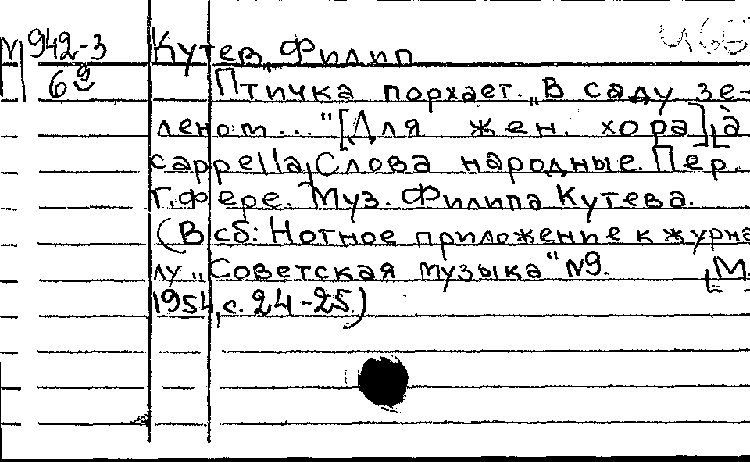 М 942-3 Кутев, Филип
69 Птичка порхает. „В саду зе-
леном..." [Для жен. хора], a
cappella, Слова народные. Пер.
Г. Фере. Муз. Филипа Кутева.
(В сб: Нотное приложение к журна
лу „Советская музыка" №9. [М.
1954, с. 24-25.)